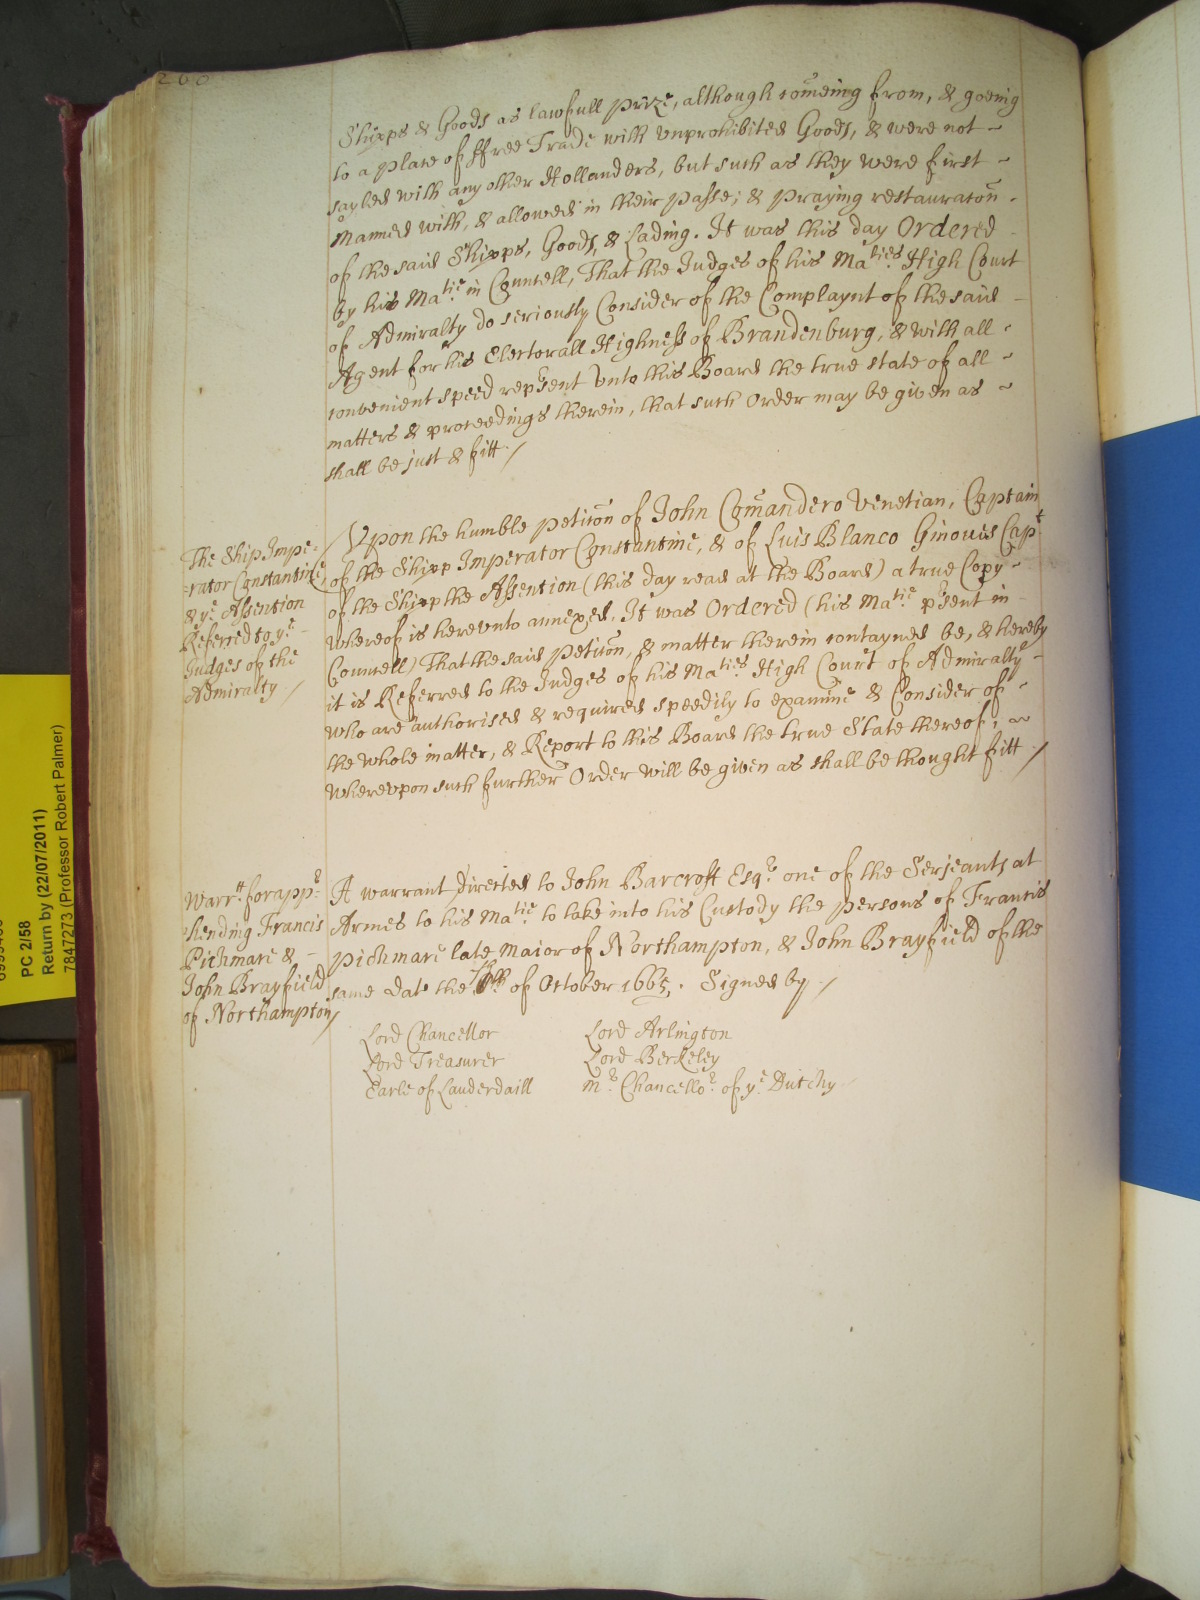 260
Shipps & Goods as lawfull prize, although coming from, & goeing
to a place of ffree Trade with vnprohibited Goods, & were not
sayled with any other Hollanders, but such as they were first
Manned with, & allowed in their passe; & praying restauracon
of the said Shipps, Goods, & Lading. It was this day Ordered
by his Matie in Councell, That the Judges of his Maties High Court
of Admiralty do seriously Consider of the Complaynt of the said
Agent for his Electorall Highness of Brandenburg, & with all
convenient speed repsent vnto this Board the true state of all
matters & proceedings therein, that such Order may be given as
shall be just & fitt /
The Ship Impe=
=rator Constantine,
& ye Assention
Referred to ye
Judges of the
Admiralty /
Vpon the humble peticon of John Comandero Venetian, Captain
of the Shipp Imperator Constantine, & of Luis Blanco Ginoues Capt
of the Shipp the Assention (this day read at the Board) a true Copy
whereof is herevnto annexed. It was Ordered (his Matie psent in
Councell) That the said peticon, & matter therein contayned be, & hereby
it is Referred to the Judges of his Maties High Court of Admiralty
who are authorised & required speedily to examine & Consider of
the whole matter, & Report to this Board the true State thereof;
wherevpon such further Order will be given as shall be thought fitt /
Warrt for appr=
=hending Francis
Pichmare &
John Brayfield
of Northampton /
A warrant directed to John Barcroft Esqr one of the Serjeants at
Armes to his Matie to take into his Custody the persons of Francis
Pichmare late Maior of Northampton, & John Brayfield of the
same Dat the of October 1665. Signed by /
Lord Chancellor
Lord Treasurer
Earle of Lauderdaill
Lord Arlington
Lord Berkeley
Mr Chancellor of ye Dutchy
PC 2/58
Return by (22/07/2011)
7847273 (Professor Robert Palmer)